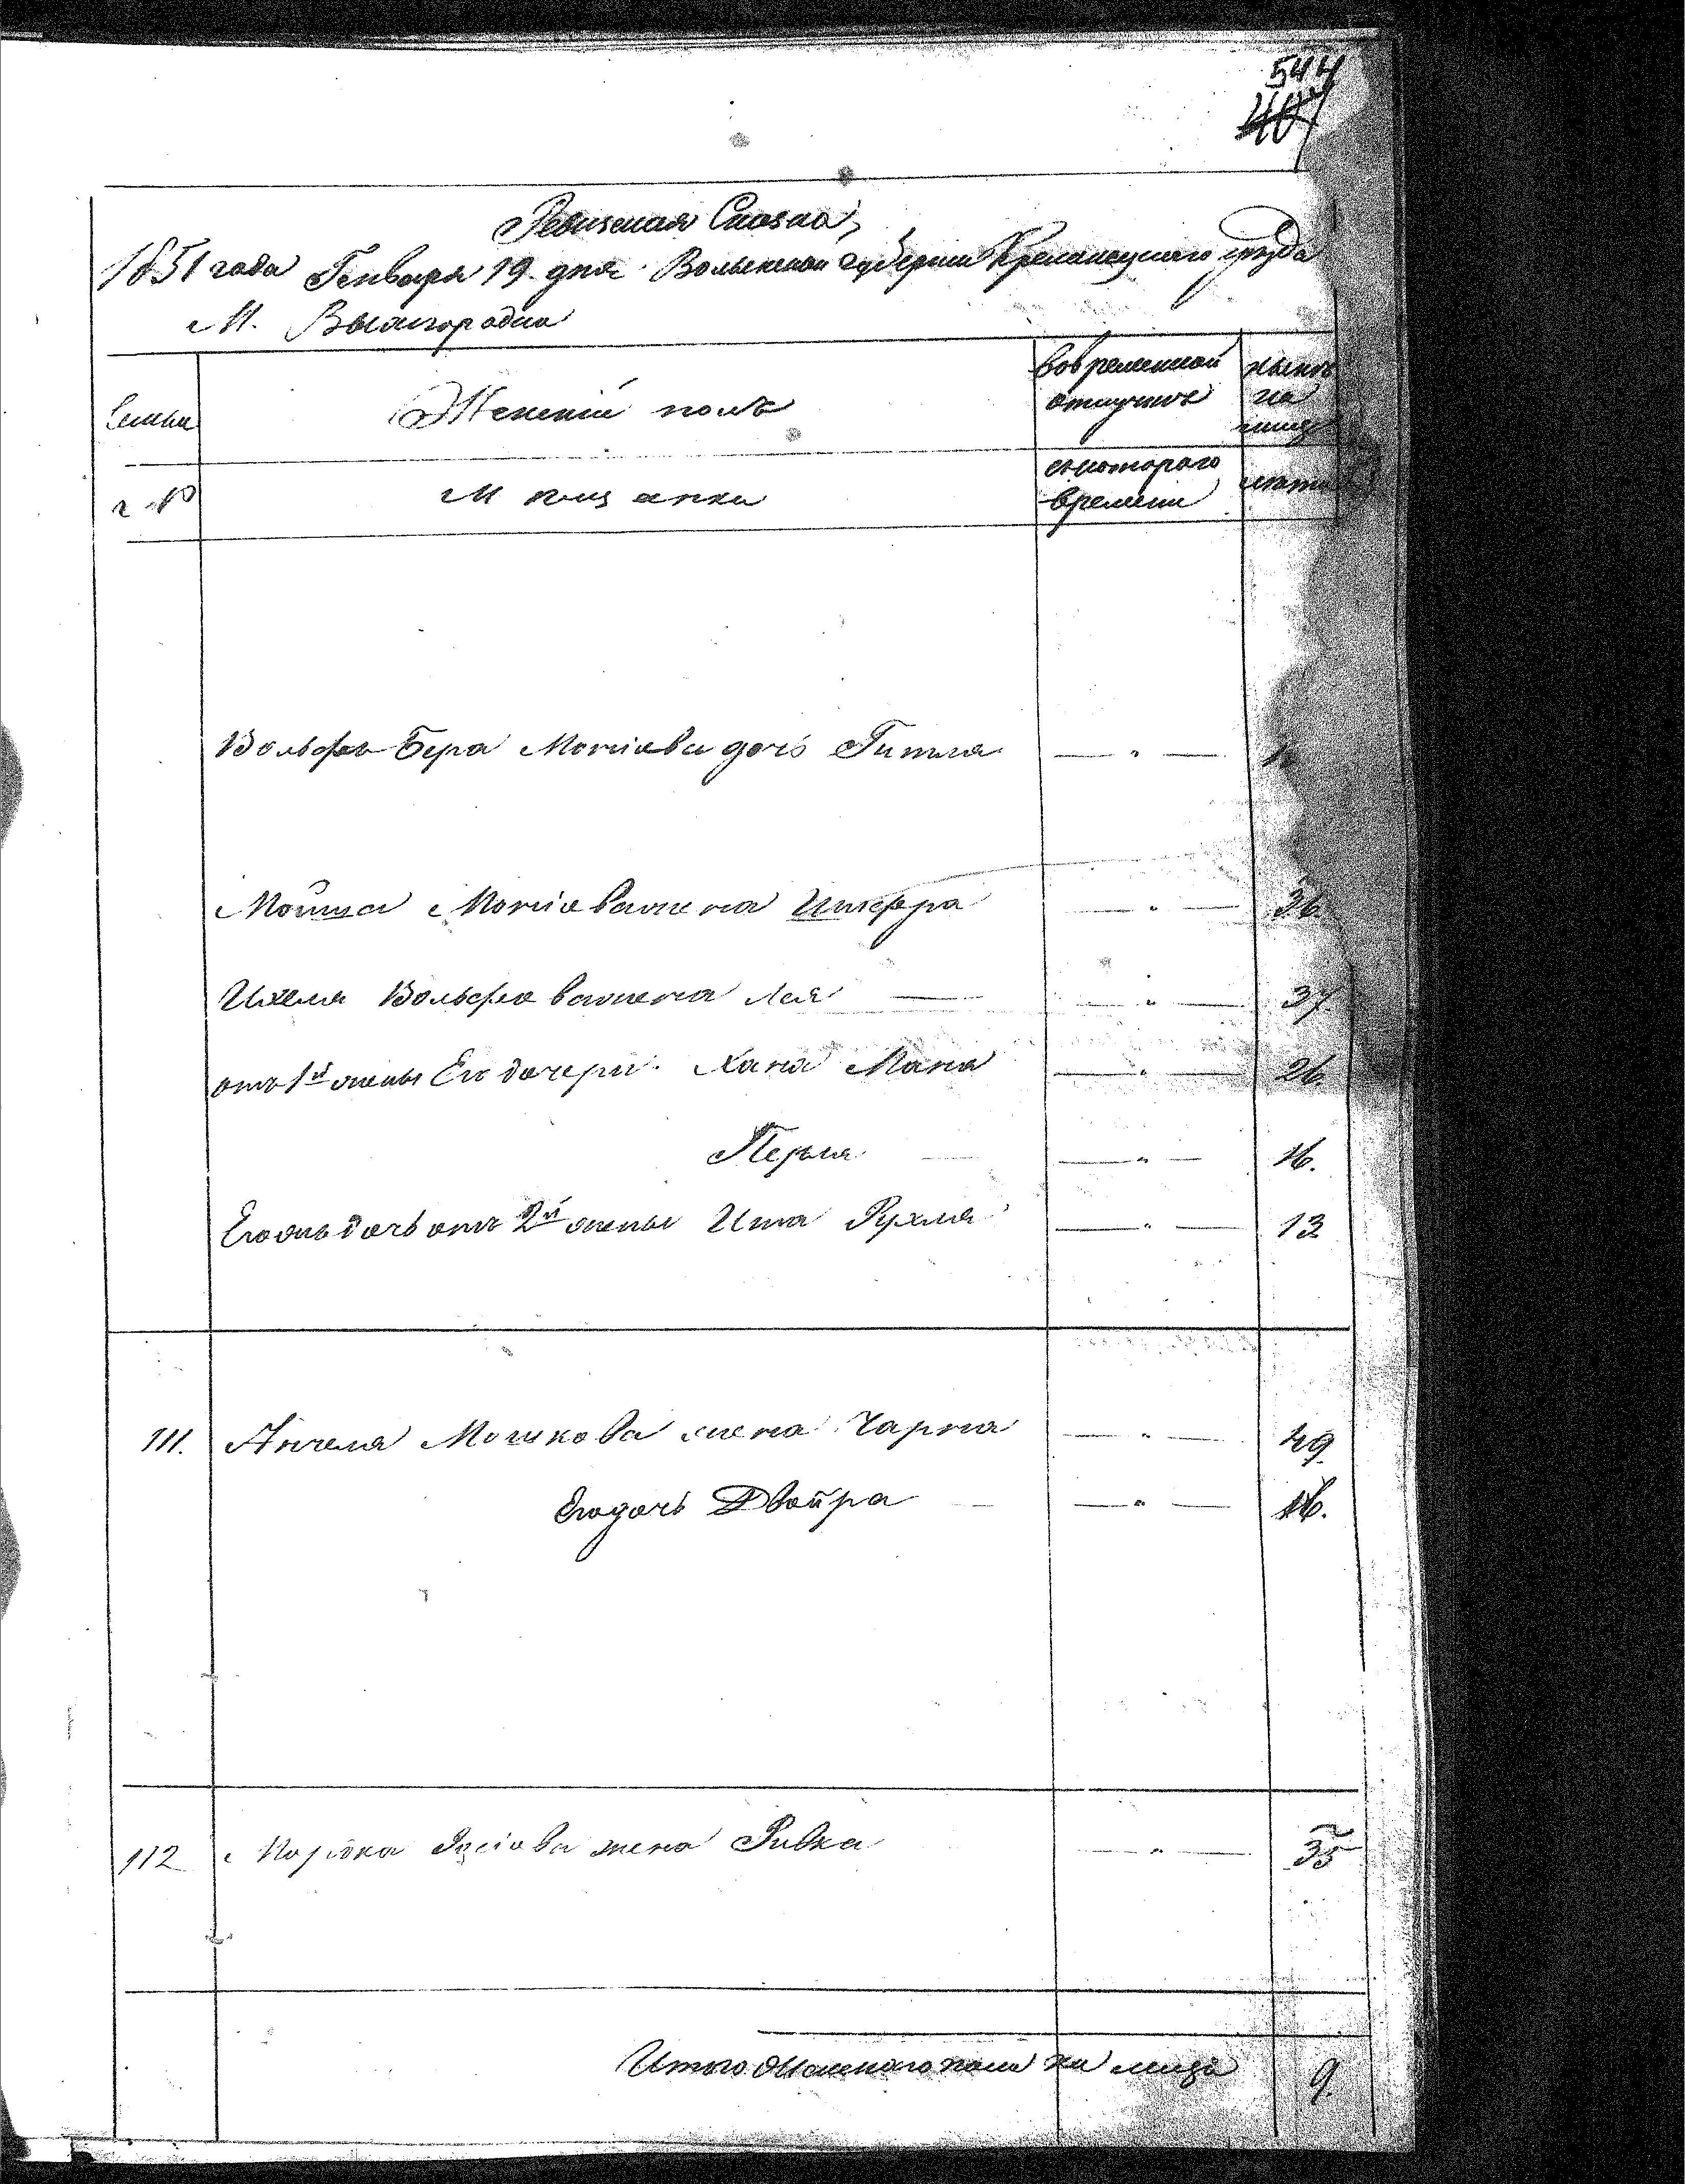 544
407
Ревизская Сказка,
1851 года Генваря 19 дня Волынской губерніи Кременецкаго уѣзда
М. Вышгородка
Семьи Женскій полъ Вовременной отлучкѣ нынѣ на лицо
№ Мѣщанки скотораго времени лѣта
Вольфа Бера Мошіова дочь Гитля — " —
Мошка Мошіова жена Шифра — " — 36.
Ихеля Вольфова жена Лея — " — 37.
отъ 1й жены Его дочери Хана Мана — " — 26.
Перля — " — 16.
Егожъ дочь отъ 2й жены Ита Рухля — " — 13
111. Анчеля Мошкова жена Чарна — " — 49
Егодочь Двойра — " — 16.
112 жена Ривка — " — 35
Итого Женскаго пола на лицо 9.